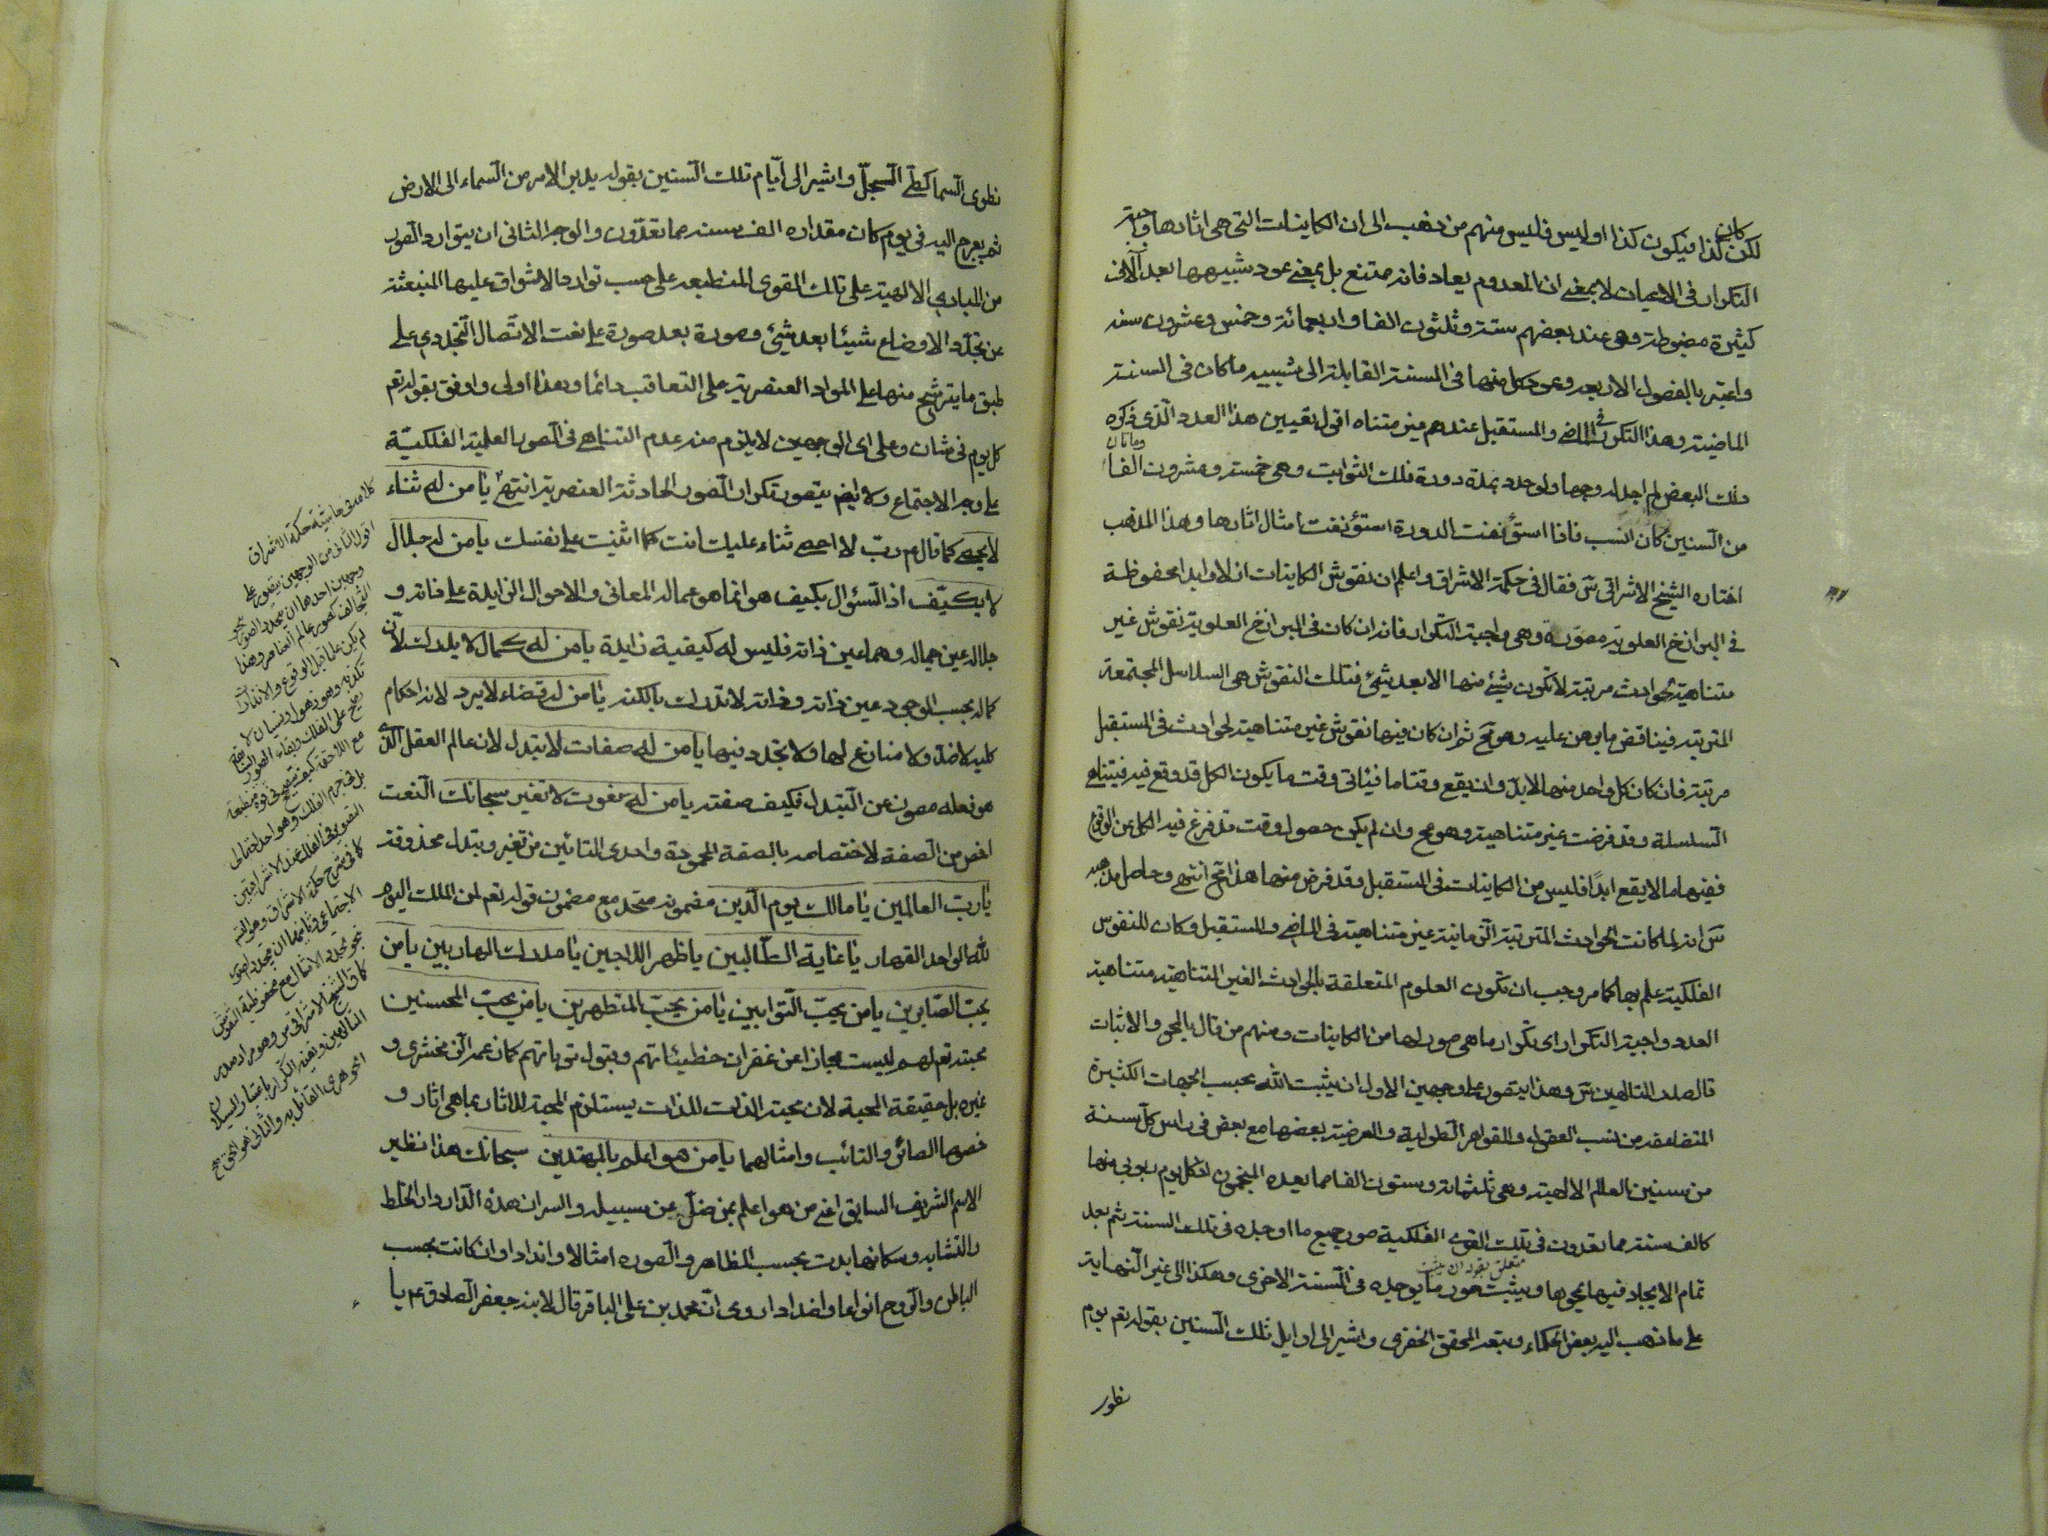 لكن كان كذا فيكون كذا او ليس فليس منهم من ذهب الى ان الكاينات التى هى اثارها واجبة
التكرار فى الاعيان لا بمعنى ان المعدوم يعاد فانه ممتنع بل بمعنى عود شبيهها بعد آلاف
كثيرة مضبوطة وهى عند بعضهم ستة وثلثون الفا واربعمائة وخمس وعشرون سنة
واعتبر بالفصول الاربعه وعود كل منها فى السنة القابلة الى شبيه ما كان فى السنة
الماضية وهذا التكرر فى الماضى والمستقبل عندهم غير متناه اقول تعيين هذا العدد الذى ذكره
ذلك البعض لم اجد له وجها ولو حدد بمدة دورة فلك الثوابت وهى خمسة وعشرون الفا ومأتان
من السنين كان انسب فاذا استؤنفت الدورة استؤنفت امثال اثارها وهذا المذهب
اختاره الشيخ الاشراقى س فقال فى حكمة الاشراق واعلم ان نقوش الكاينات ازلا وابدا محفوظة
فى البرازخ العلوية مصورة وهى واجبة التكرار فانه ان كان فى البرازخ العلوية نقوش غير
متناهية لحوادث مرتبة لا تكون شئ منها الا بعد شئ فتلك النقوش هى السلاسل المجتمعة
المترتبة فيناقض ما برهن عليه وهو مح ثم ان كان فيها نقوش غير متناهية لحوادث فى المستقبل
مرتبة فان كان كل واحد منها لابد وان يقع وقتا ما فيأتى وقت ما يكون الكل قد وقع فيه فيتناهى
السلسلة وقد فرضت غير متناهية وهو مح وان لم يكن حصول وقت قد فرغ فيه الكل عن الوقوع
ففيها ما لا يقع ابدا فليس من الكاينات فى المستقبل وقد فرض منها هذا مح انتهى وحاصل مذهبه
س انه لما كانت الحوادث المترتبة الزمانية غير متناهية فى الماضى والمستقبل وكان للنفوس
الفلكية علم بها كما مر وجب ان تكون العلوم المتعلقة بالحوادث الغير المتناهية متناهية
العدد واجبة التكرار اى تكرار ما هى صور لها من الكاينات ومنهم من قال بالمحو والاثبات
قال صدر المتالهين س وهذا يتصور على وجهين الاول ان يثبت الله بحسب الجهات الكثيرة
المتضاعفة من نسب العقول والقواهر الطولية والعرضية بعضها مع بعض فى راس كل سنة
من سنين العالم الالهية وهى ثلثمائة وستون الفا مما يعده المنجمون اذ كل يوم ربوبى منها
كالف سنة مما تعدون فى تلك القوى الفلكية صور جميع ما اوجده فى تلك السنة ثم بعد
تمام الايجاد فيها يمحوها ويثبت صور ما يوجده فى السنة الاخرى وهكذا الى غير النهاية
متعلق بقوله ان يثبت
على ما ذهب اليه بعض الحكماء وتبعه المحقق الخفرى واشير الى اوايل تلك السنين بقوله تعم يوم
نطوى
نطوى السماء كطى السجل واشير الى ايام تلك السنين بقوله يدبر الامر من السماء الى الارض
ثم يعرج اليه فى يوم كان مقداره الف سنة مما تعدون والوجه الثانى ان يتوارد الصور
من المبادى الالهية على تلك القوى المنطبعة على حسب توارد الاشراق عليها المنبعثة
عن تجدد الاوضاع شيئا بعد شيئ وصورة بعد صورة على نعت الاتصال التجددى على
طبق ما يترشح منها على المواد العنصرية على التعاقب دائما وهذا اولى واوفق بقوله تعم
كل يوم فى شان وعلى اى الوجهين لا يلزم منه عدم التناهى فى الصور العلمية الفلكية
على وجه الاجتماع ولا ايض يتصور تكرار الصور الحادثة العنصرية انتهى يا من له ثناء
لا يحصى كما قال م رب لا احصى ثناء عليك انت كما اثنيت على نفسك يا من له جلال
لا يكيف اذ السؤال بكيف هو انما هو عما له المعانى والاحوال الزايدة على ذاته و
جلاله عين جماله وهما عين ذاته فليس له كيفية زايدة يا من له كمال لا يدرك لان
كماله بحسب الوجود عين ذاته وذاته لا تدرك بالكنه يا من له قضاء لا يرد لانه احكام
كلية لا ضد ولا منازع لها ولا تجدد فيها يا من له صفات لا تبدل لان عالم العقل الذى
هو فعله مصون عن التبدل فكيف صفته يا من له نعوت لا تغير سبحانك النعت
اخص من الصفة لاختصاصه بالصفة المحمودة واحدى التائين من تغير وتبدل محذوفة
يا رب العالمين يا مالك يوم الدين مضمونه متحد مع مضمون قوله تعم لمن الملك اليوم
لله الواحد القهار يا غاية الطالبين يا ظهر اللاجين يا مدرك الهاربين يا من
يحب الصابرين يا من يحب التوابين يا من يحب المتطهرين يا من يحب المحسنين
محبته تعم لهم ليست مجازا عن غفران خطيئاتهم وقبول توباتهم كما زعمه الزمخشرى و
غيره بل حقيقة المحبة لان محبة الذات للذات يستلزم المحبة للاثار بما هى اثار و
خصوصا الصابر والتائب وامثالهما يا من هو اعلم بالمهتدين سبحانك هذا نظير
الاسم الشريف السابق اعنى من هو اعلم بمن ضل عن سبيله والسر ان هذه الدار دار الخلط
والتشابه وسكانها بدت بحسب الظاهر والصوره امثالا واندادا وان كانت بحسب
الباطن والروح انواعا واضدادا روى ان محمد بن على الباقر قال لابنه جعفر الصادق ع يا
كلامه فى حاشية حكمة الاشراق
اقول الثانى من الوجهين يتصور على
وجهين احدهما ان تجدد الصور بنحو